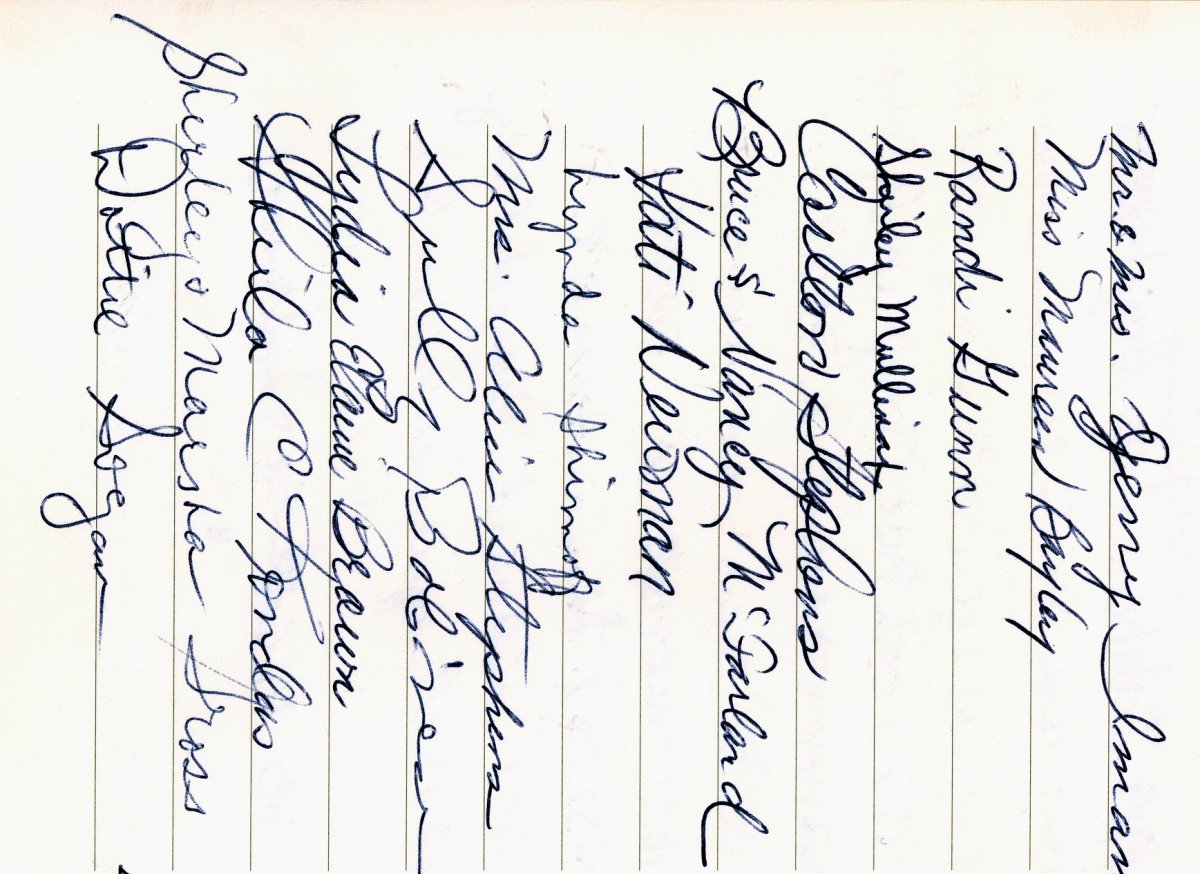 Mr. & Mrs. Jerry Inman
Miss Maureen Bayley
Randi Gunn
Shirley Mullinax
Carlton Stephens
Bruce & Nancy McFarland
Kati Newman
Lynda Shimoff
Mrs. Alvin Stephens
Sully Bolivar
Lydia Elaine Brown
Sheila C.
Shirley & Marsha Gross
Dottie Logan